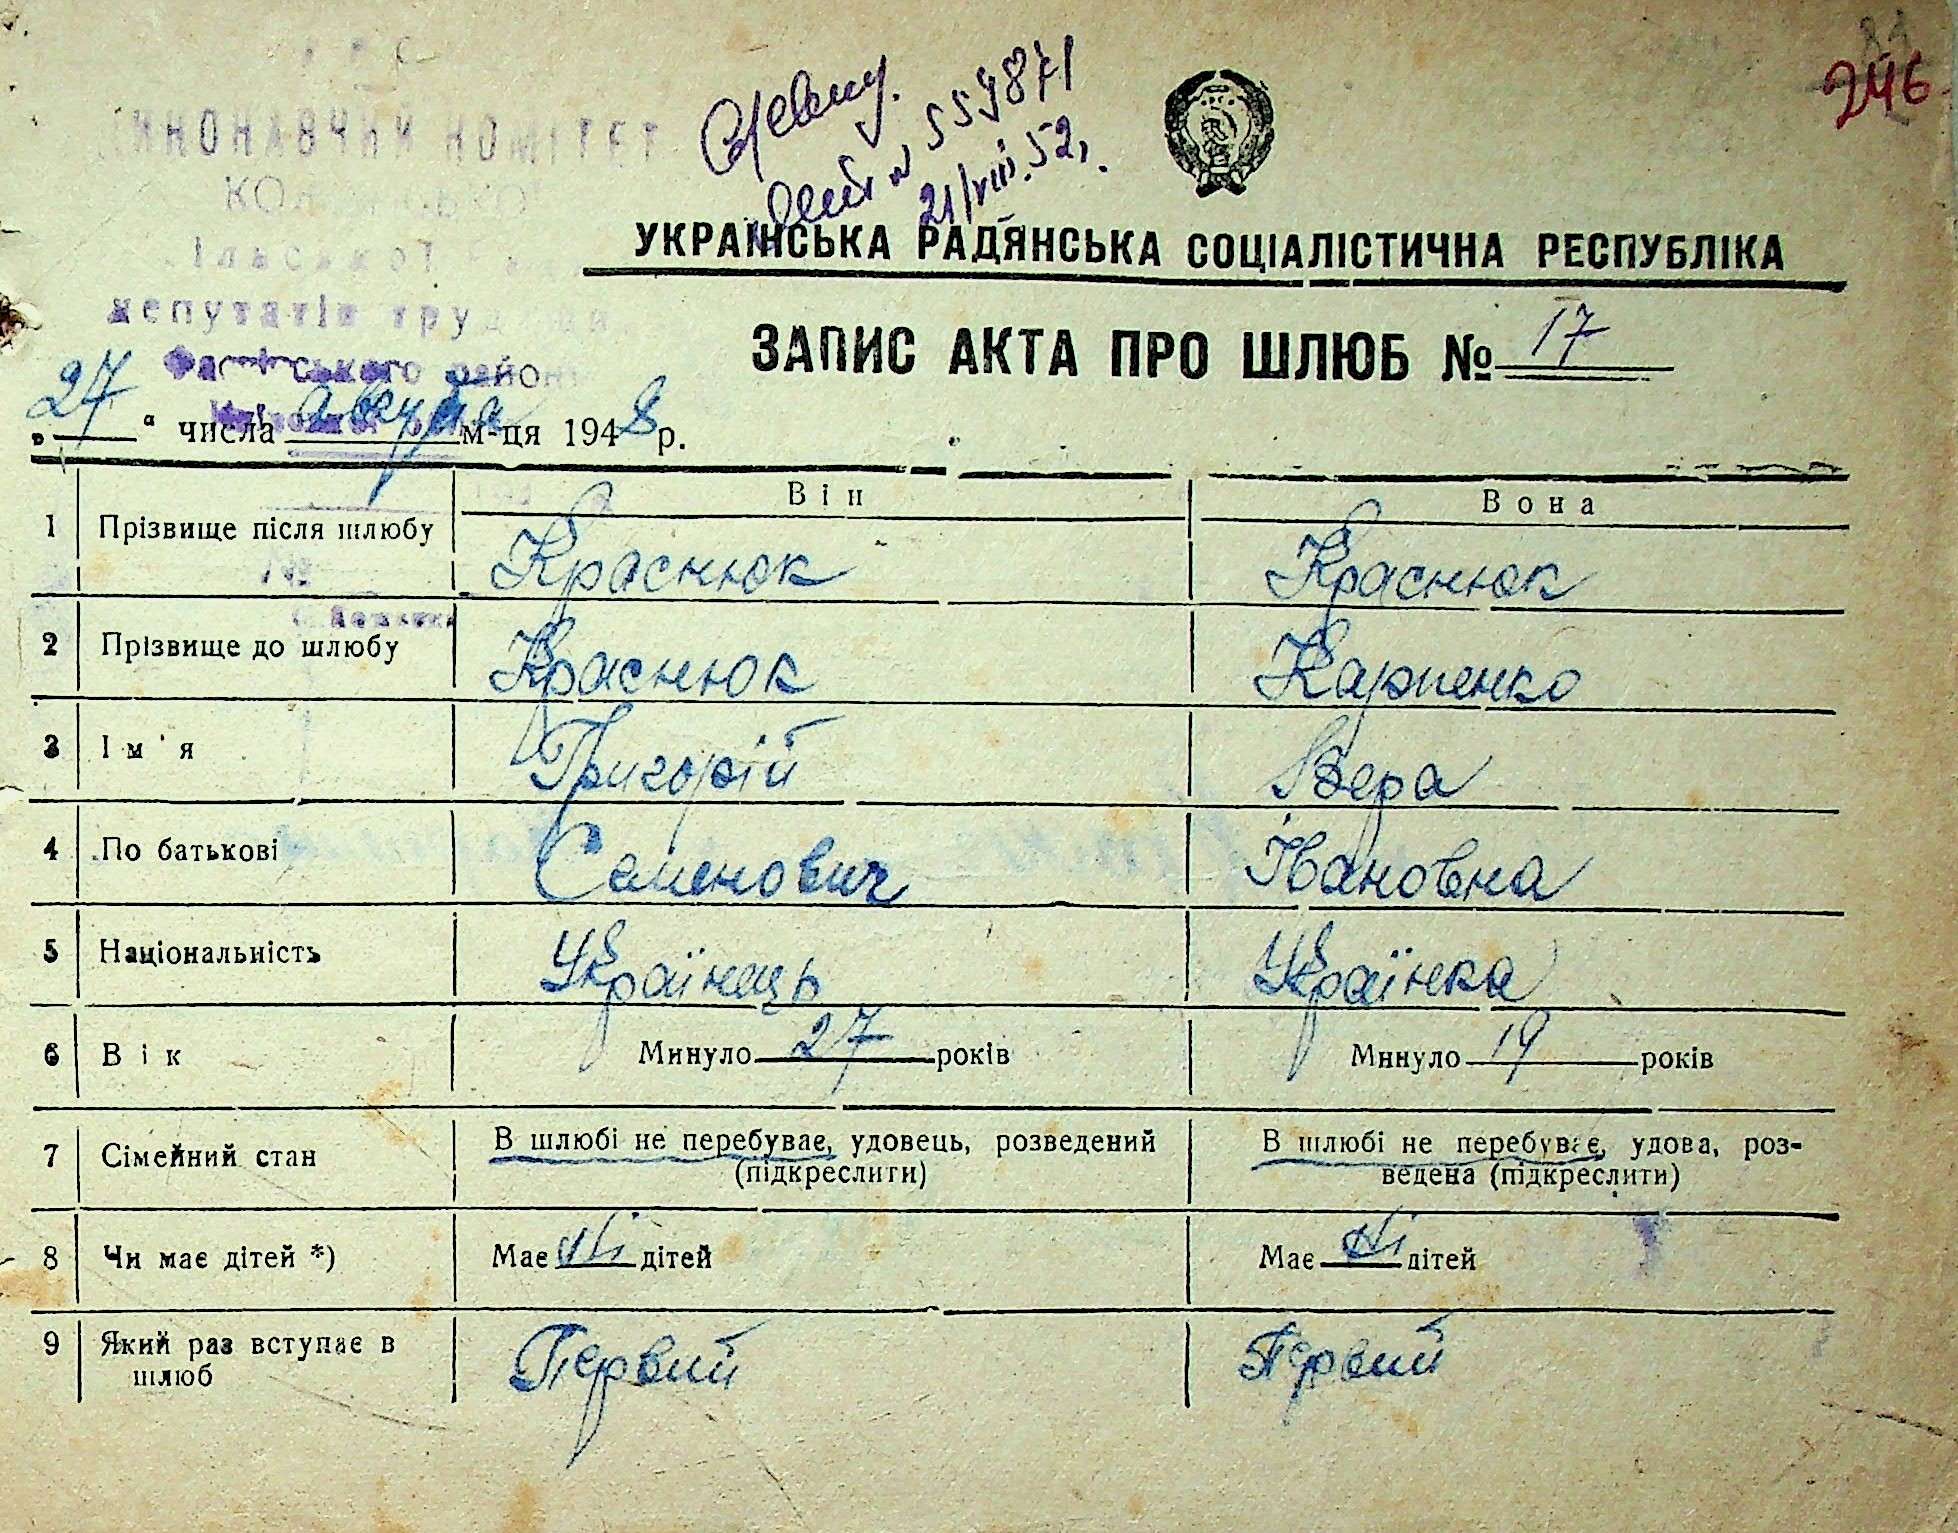 246
559871
21/VIII.52
ВИКОНАВЧИЙ КОМІТЕТ
депутатів
району
УКРАЇНСЬКА РАДЯНСЬКА СОЦІАЛІСТИЧНА РЕСПУБЛІКА
ЗАПИС АКТА ПРО ШЛЮБ № 17
„27“ числа августа м-ця 1948 р.
Він Вона
1 Прізвище після шлюбу Краснюк Краснюк
2 Прізвище до шлюбу Краснюк Карпенко
3 Ім'я Григорій Вера
4 По батькові Семенович Івановна
5 Національність Українець Українка
6 Вік Минуло 27 років Минуло 19 років
7 Сімейний стан В шлюбі не перебуває, удовець, розведений В шлюбі не перебуває, удова, роз-
(підкреслити) ведена (підкреслити)
8 Чи має дітей *) Має ні дітей Має ні дітей
9 Який раз вступає в Первий Первий
шлюб